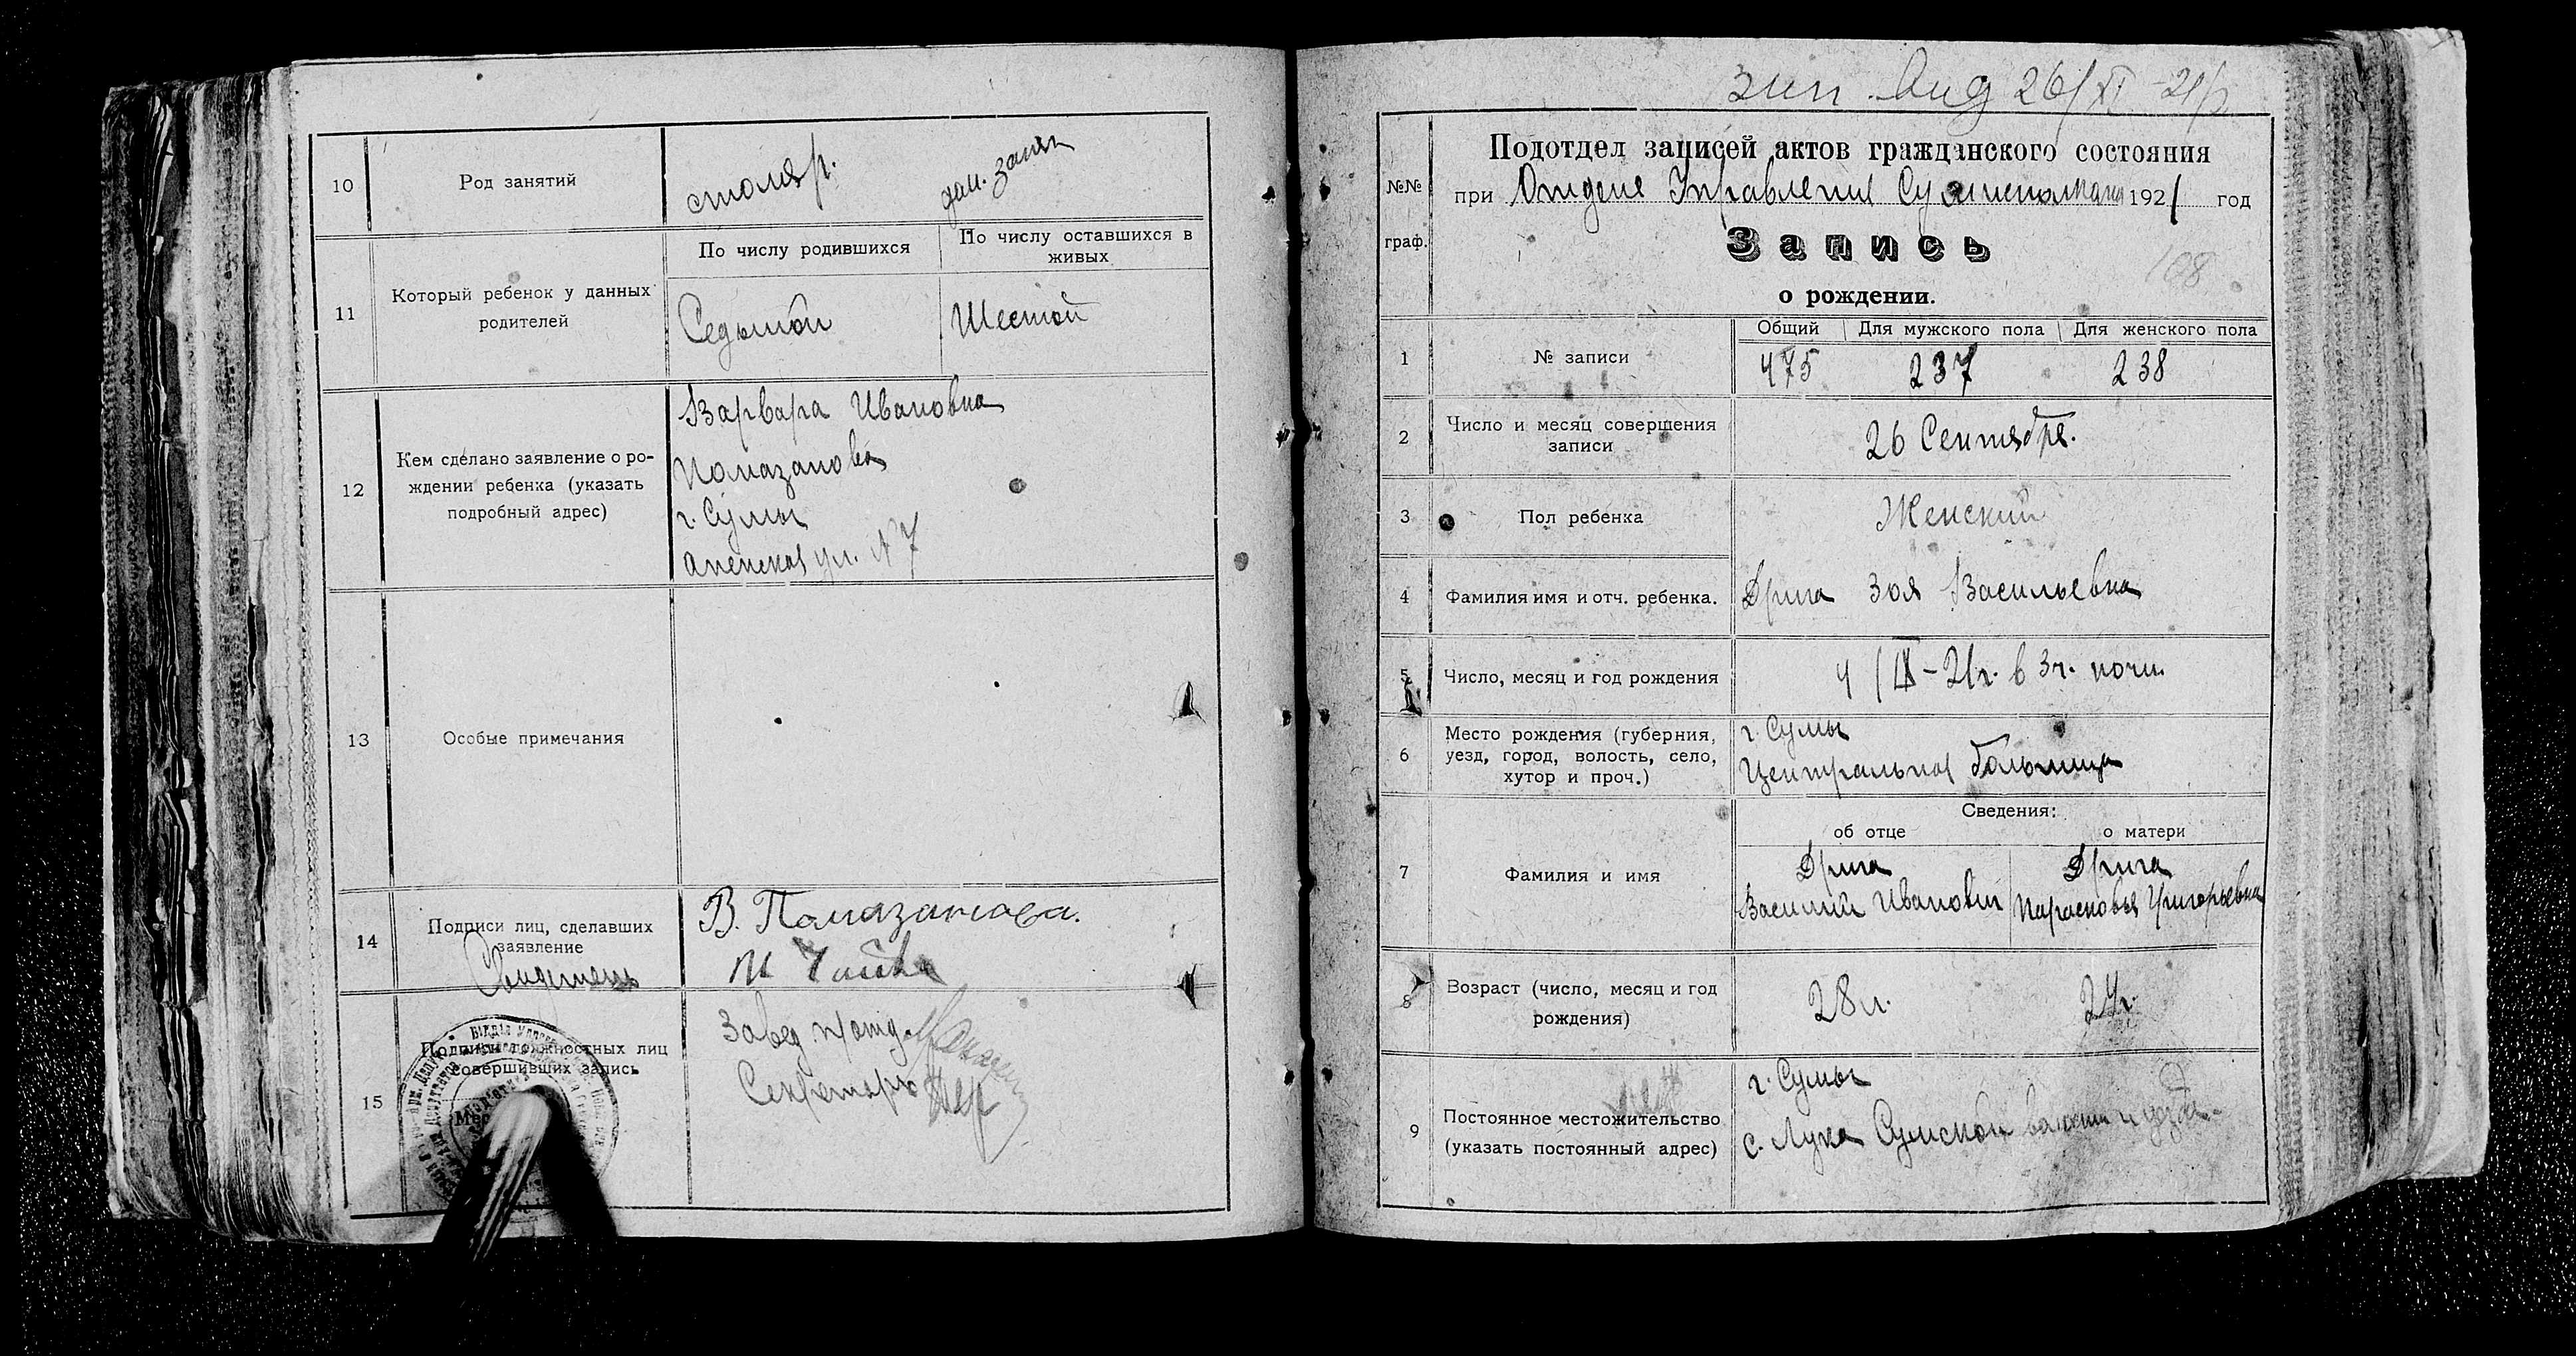 10
Род занятий
столяр.
дом. занят
11
Который ребенок у данных
родителей
По числу родившихся
По числу оставшихся в
живых
Седьмой
Шестой
12
Кем сделано заявление о ро-
ждении ребенка (указать
подробный адрес)
Варвара Ивановна
Помазанова
г. Сумы
ул. № 7
13
Особые примечания
14
Подписи лиц, сделавших
заявление
В. Помазанова.
15
Подписи должностных лиц
совершивших запись
Завед. п/отд.
Секретарь
26/XI-21 г
№№
граф.
Подотдел записей актов гражданского состояния
при Отделе Управления 1921 год
Запись
108
о рождении.
1
№ записи
Общий
Для мужского пола
Для женского пола
475
237
238
2
Число и месяц совершения
записи
26 Сентября.
3
Пол ребенка
Женский
4
Фамилия имя и отч. ребенка.
Дрига Зоя Васильевна
5
Число, месяц и год рождения
4/IX-21г. в 3ч. ночи
6
Место рождения (губерния,
уезд, город, волость, село,
хутор и проч.)
г. Сумы
Центральная больница
Сведения:
об отце
о матери
7
Фамилия и имя
Дрига
Василий Иванович
Дрига
Парасковья Григорьевна
8
Возраст (число, месяц и год
рождения)
28 л.
9
Постоянное местожительство
(указать постоянный адрес)
г. Сумы
с. Лука Сумской волости и уезда